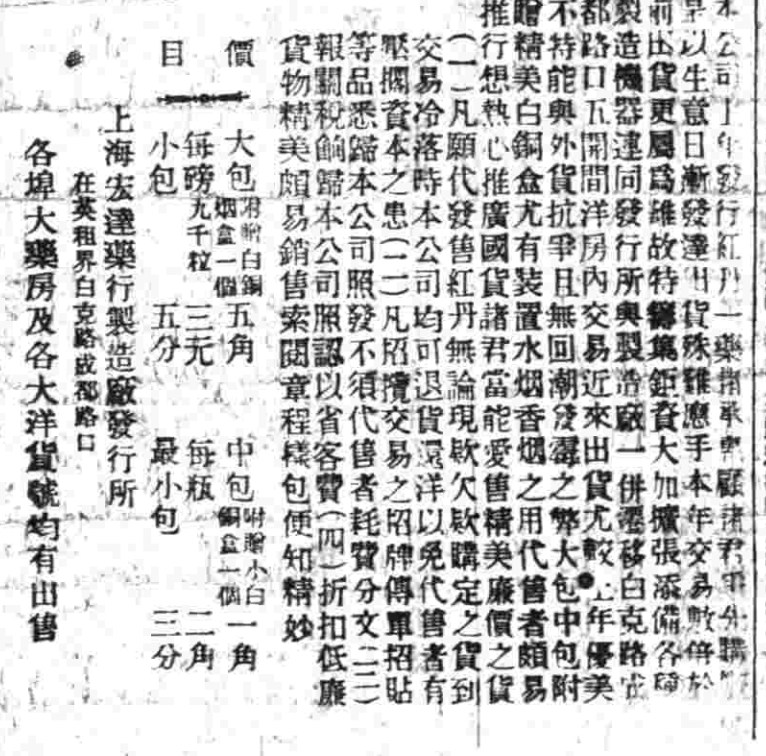 本公司上年發行紅丹一藥
顧諸君
早以生意日漸發達出貨殊難應手本年交易數倍於
前出貨更屬爲難故特籌集鉅資大加擴張添備各種
製造機器連同發行所與製造廠一併遷移白克路成
都路口五開間洋房內交易近來出貨尤較上年優美
不特能與外貨抗爭且無回潮發霉之弊大包中包附
贈精美白銅盒尤有裝置水烟香烟之用代售者頗易
推行想熱心推廣國貨諸君當能愛售精美廉價之貨
(一)凡願代發售紅丹無論現欵欠欵購定之貨到
交易冷落時本公司均可退貨還洋以免代售者有
壓擱資本之患(二)凡招攬交易之招牌傳單招貼
等品悉歸本公司照發不須代售者耗費分文(三)
報關稅餉歸本公司照認以省客費(四)折扣低廉
貨物精美頗易銷售索閱章程樣包便知精妙
價目
大包附贈白銅烟盒一個五角 中包附贈小白銅盒一個一角
每磅九千粒三元 每瓶二角
小包五分 最小包三分
上海宏達藥行製造廠發行所
在英租界白克路成都路口
各埠大藥房及各大洋貨號均有出售